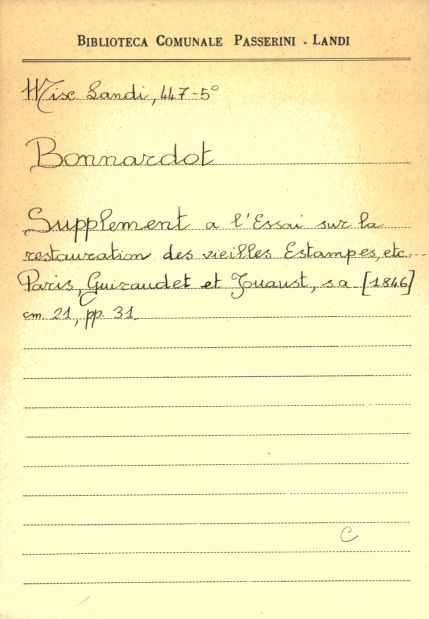 BIBLIOTECA COMUNALE PASSERINI - LANDI
Misc Landi, 447-5°
Bonnardot
Supplement a l'Essai sur la
restauration des vieilles Estampes, etc.
Paris, Guiraudet et Jouaust, s.a [1846]
cm. 21, pp. 31
C